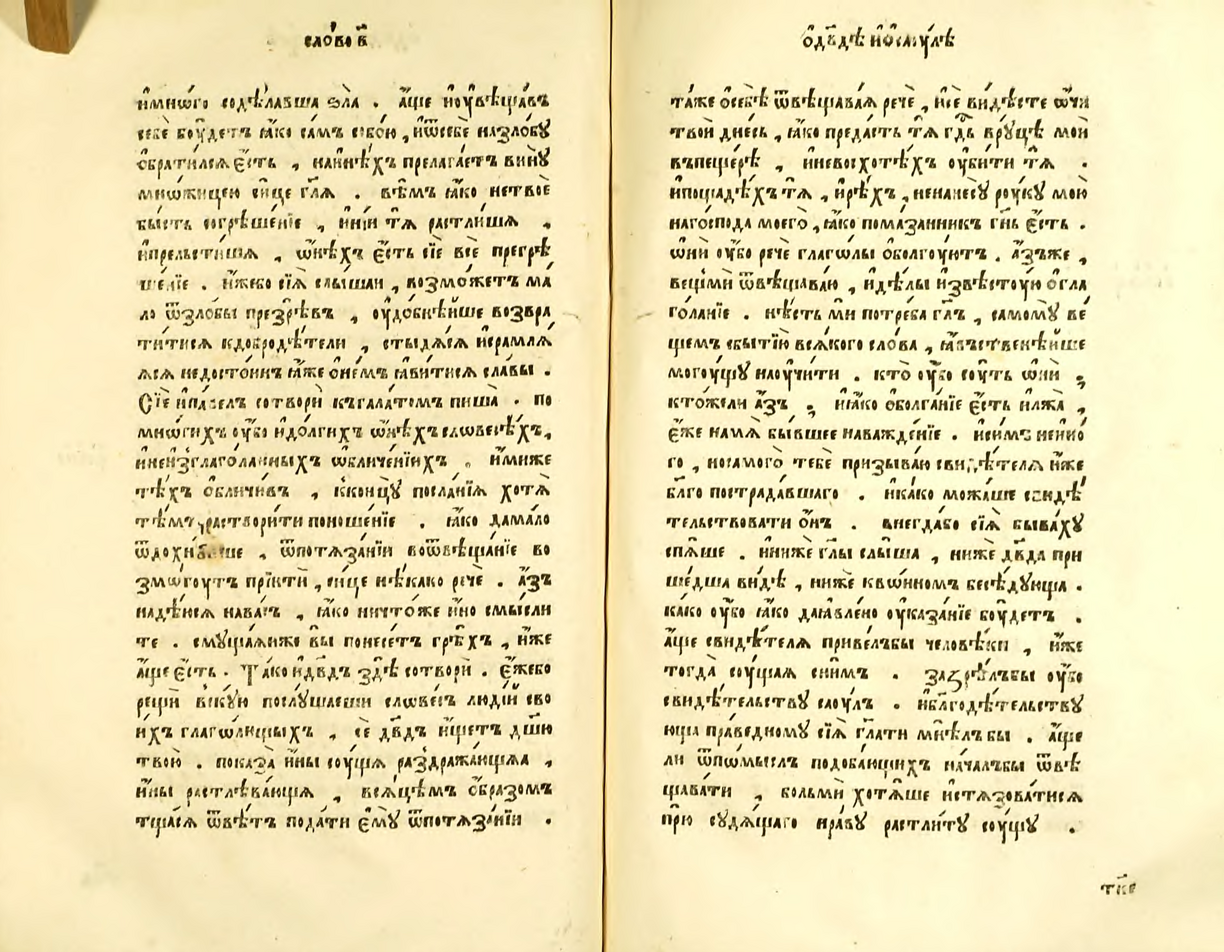 сло́во в҃
и҆мнѡ́го содѣ́лавша ѕла̀ . а҆́ще и҆оу҆вѣщава́въ
себѐ бꙋ́детъ ꙗ҆́ко са́мъ собо́ю , и҆ѿсебѐ назло́бꙋ
ѻ҆брати́лсѧ є҆́сть , наи҆нѣ́хъ прелага́етъ винꙋ̀
мнѡ́жицею си́це гл҃ѧ . вѣ́мъ ꙗ҆́ко нетвоѐ
бы́сть согрѣше́нїе , и҆ні́и тѧ̀ растли́шѧ ,
и҆прельсти́шѧ , ѻ҆нѣ́хъ є҆́сть сїѐ всѐ прегрѣ
ше́нїе . и҆́жебо сїѧ̀ слы́шаи , возмо́жетъ ма́
ло ѿзло́бы презрѣ́въ , оу҆до́бнѣйше возвра
ти́тисѧ кдобродѣ́тели , стыдѧ́сѧ и҆срамлѧ́
ѧсѧ недосто́инъ ꙗ҆́же ѻ҆не́мъ ꙗ҆ви́тисѧ сла́вы .
Сїѐ и҆па́велъ сотворѝ къгала́томъ пиша̀ . по
мнѡ́гихъ оу҆́бо и҆до́лгихъ ѻ҆нѣ́хъ словесѣ́хъ,
и҆неи҆зглаго́ланныхъ ѡ҆бличе́нїихъ , и҆́миже
тѣ́хъ ѻ҆бличи́въ , кконцꙋ̀ посла́нїѧ хотѧ̀
тѣ́мъ раствори́ти поноше́нїе . ꙗ҆́ко дама́ло
ѿпотѧза́нїи воѿвѣща́нїе во
змо́гꙋтъ прїити́ , си́це нѣ́како рече́ . а҆́зъ
надѣ́юсѧ нава́съ , ꙗ҆́ко ничто́же и҆́но смы́сли
те . смꙋща́ѧиже вы̀ понесе́тъ грѣ́хъ , и҆́же
а҆́ще є҆́сть . Та́ко и҆дв҃дъ здѣ̀ сотворѝ . є҆́жебо
рещѝ вскꙋ́ю послꙋ́шаеши слове́съ люді́й сво
и́хъ глаго́лющихъ , сѐ дв҃дъ и҆́щетъ дш҃ю
твою̀ . показа̀ и҆́ны сꙋ́щѧ раздража́ющѧѧ ,
и҆́ны растлѣва́ющѧ , всѧ́цѣмъ ѻ҆́бразомъ
тща́сѧ ѿвѣ́тъ пода́ти є҆мꙋ̀ ѿпотѧза́нїи .
ѻ҆дв҃дѣ и҆ѻ҆саꙋ́лѣ
та́же ѻ҆себѣ̀ ѿвѣщава́ѧ речѐ , и҆сѐ ви́дѣсте ѻ҆́чи
твоѝ дне́сь , ꙗ҆́ко преда́сть тѧ̀ гд҃ь врꙋ́цѣ моѝ
въпеще́рѣ , и҆невосхотѣ́хъ оу҆би́ти тѧ̀ .
и҆пощадѣ́хъ тѧ̀ , и҆рѣ́хъ , ненанесꙋ̀ рꙋ́кꙋ мою̀
наго́спода моего̀ , ꙗ҆́ко пома́занникъ гн҃ь є҆́сть .
ѻ҆нѝ оу҆́бо речѐ глаго́лы ѻ҆болгꙋ́ютъ . а҆́зъже ,
веща́ми ѿвѣщава́ю , и҆дѣ́лы и҆звѣстꙋ́ю ѻ҆гла
го́ланїе . нѣ́сть мѝ потре́ба гл҃ъ , самомꙋ̀ ве́
щемъ сбытїю̀ всѧ́кого сло́ва , ꙗ҆́вьственѣйше
могꙋ́щꙋ наꙋчи́ти . кто̀ оу҆́бо сꙋ́ть ѻ҆нѝ ;
кто́жели а҆́зъ ; и҆ꙗ҆́ко ѻ҆болга́нїе є҆́сть и҆лжа̀ ,
є҆́же намѧ̀ бы́вшее наважде́нїе . и҆си́мъ неи҆но
го , носамого̀ тебѐ призыва́ю свидѣ́телѧ и҆́же
бл҃го пострада́вшаго . и҆ка́ко можа́ше свидѣ́
тельствовати ѻ҆́нъ . внегда́бо сїѧ̀ быва́хꙋ
спѧ́ше . и҆ни́же гл҃ы слы́ша , ни́же дв҃да при
ше́дша ви́дѣ , ни́же квѻ́иномъ бесѣ́дꙋюща .
ка́ко оу҆́бо ꙗ҆́ко да́ꙗвлено оу҆каза́нїе бꙋ́детъ .
а҆́ще свидѣ́телѧ приве́лъбы человѣ́ки , и҆́же
тогда̀ сꙋ́щаѧ сни́мъ . зазрѣ́лъбы оу҆́бо
свидѣ́тельствꙋ саꙋ́лъ . и҆бл҃годѣ́тельствꙋ
юща пра́ведномꙋ сїѧ̀ гл҃ати мнѣ́лъбы . а҆́ще
ли ѿпо́мыслъ подоба́ющихъ нача́лъбы ѿвѣ
щава́ти , бо́льми хотѧ́ше и҆стѧзова́тисѧ
прю̀ сꙋдѧ́щаго нра́вꙋ растли́тꙋ сꙋ́щꙋ .
тк҃е